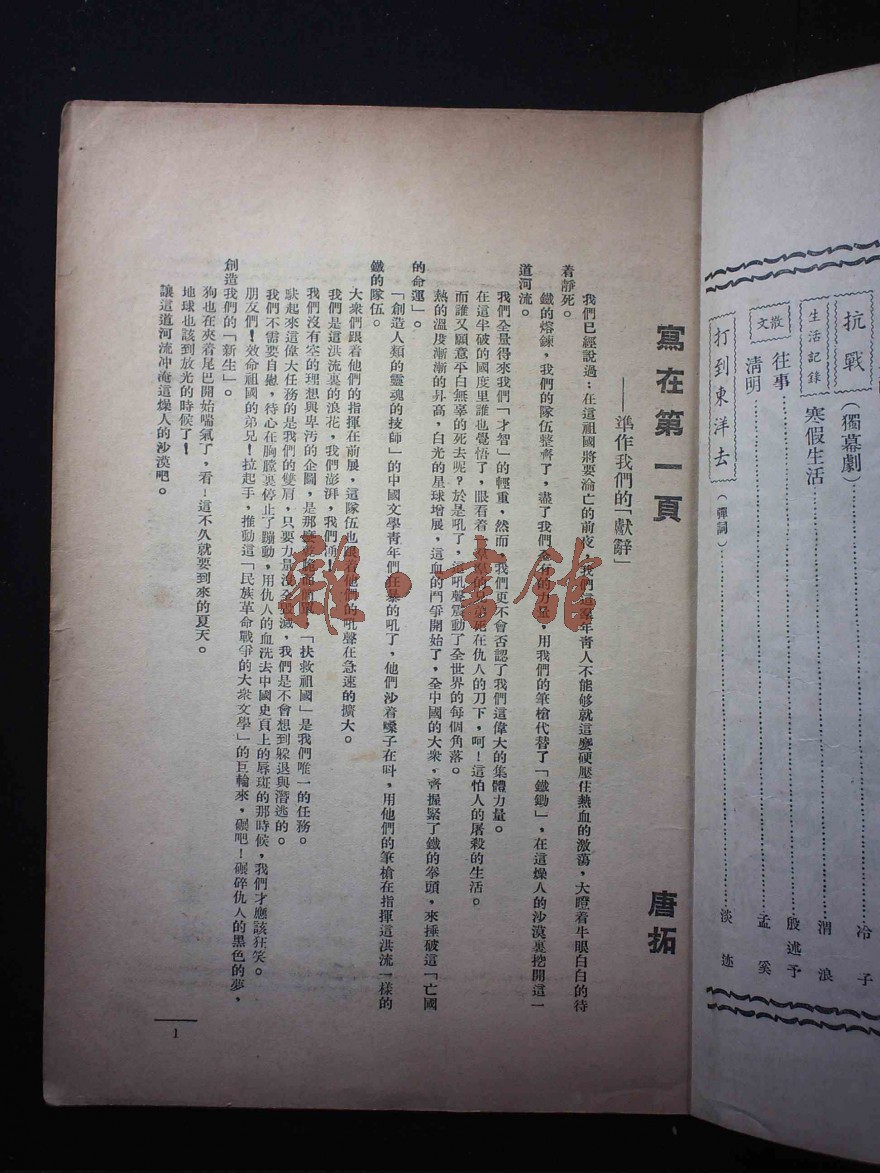 抗戰
（獨幕劇）
冷子
生活記錄
寒假生活
渭浪
散文
往事
殷述予
清明
孟奚
打到東洋去
（彈詞）
淡迹
寫在第一頁
唐拓
——準作我們的「獻辭」
我們已經說過：在這祖國將要淪亡的前夜，我們這羣年青人不能够就這麼硬壓住熱血的激蕩，大瞪着牛眼白白的待
着靜死。
鐵的熔鍊，我們的隊伍整齊了，盡了我們全有的力量，用我們的筆槍代替了「鐵鋤」，在這燥人的沙漠裏挖開這一
道河流。
我們全量得來我們「才智」的輕重，然而，我們更不會否認了我們這偉大的集體力量。
在這半破的國度里誰也覺悟了，眼看着的兄弟死在仇人的刀下，呵！這怕人的屠殺的生活。
而誰又願意平白無辜的死去呢？於是吼了，這吼聲震動了全世界的每個角落。
熱的溫度漸漸的昇高，白光的星球增展，這血的鬥爭開始了，全中國的大衆，齊握緊了鐵的拳頭，來捶破這「亡國
的命運」。
「創造人類的靈魂的技師」的中國文學青年們狂暴的吼了，他們沙着嗓子在呌，用他們的筆槍在指揮這洪流一樣的
鐵的隊伍。
大衆們跟着他們的指揮在前展，這隊伍也跟着他們的吼聲在急速的擴大。
我們是這洪流裏的浪花，我們澎湃，我們湧！
我們沒有空的理想與卑污的企圖，是那麼「扶救祖國」是我們唯一的任務。
馱起來這偉大任務的是我們的雙肩，只要力量沒全毀滅，我們是不會想到躱退與潛逃的。
我們不需要自慰，待心在胸膛裏停止了蹦動，用仇人的血洗去中國史頁上的辱斑的那時候，我們才應該狂笑。
朋友們！效命祖國的弟兄！拉起手，推動這「民族革命戰爭的大衆文學」的巨輪來，碾吧！碾碎仇人的黑色的夢，
創造我們的「新生」。
狗也在夾着尾巴開始喘氣了，看！這不久就要到來的夏天。
地球也該到放光的時候了！
讓這道河流冲淹這燥人的沙漠吧。
1
雜·書館